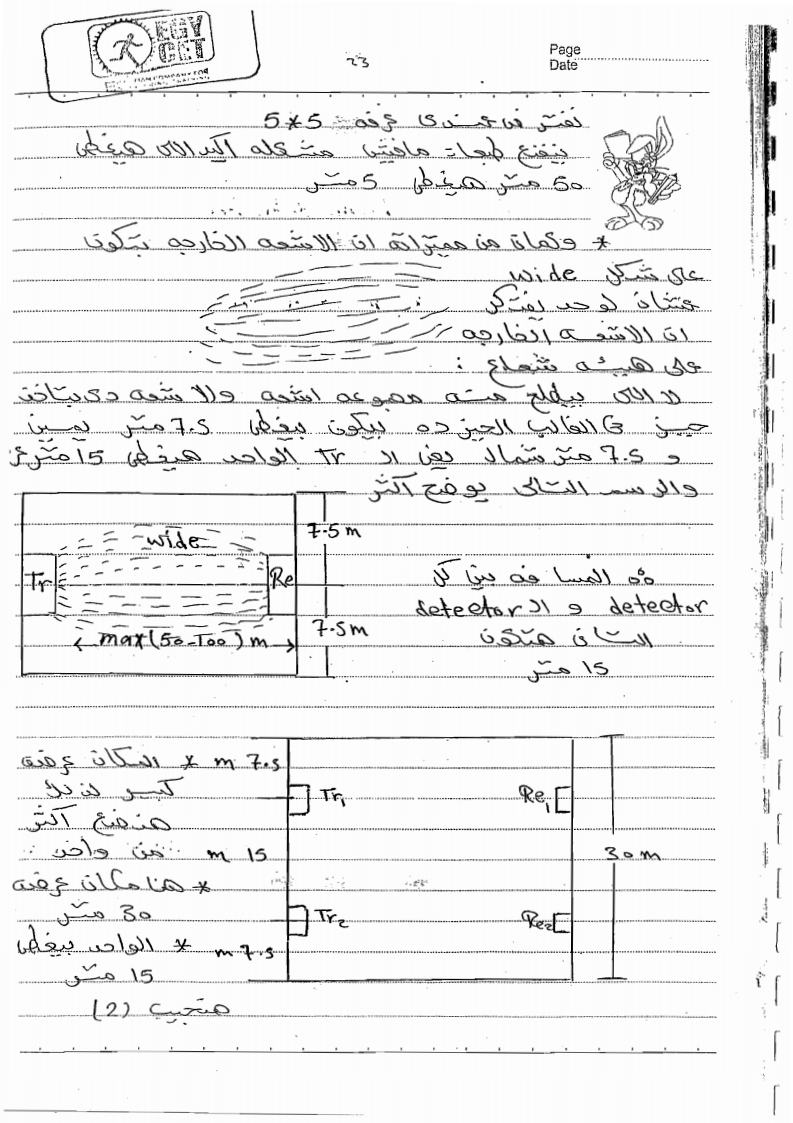 EGY
CET
23
Page
Date
نفترض عندى غرفة 5*5
ينفع طبعاً مافيش مشكله اكيد اللى هيغطى
50 متر هيغطى 5 متر
* وكمان من مميزاته ان الاشعه الخارجه بتكون
على شكل wide
عشان لو حد يفتكر
ان الاشعه الخارجه
على هيئه شعاع :
لا اللى بيطلع منه مجموعه اشعه والاشعه دى بتاخد
حيز فى الغالب الحيز ده بيكون بيغطى 7.5 متر يمين
و 7.5 متر شمال يعنى الـ Tr الواحد هيغطى 15 متر
والرسم التالى يوضح اكثر
7.5 m
wide
Tr
Re
max (50-100) m
7.5 m
∴ المسافه بين كل
detector و الـ detector
التانى هتكون
15 متر
* المكان عرضه
كبير لذلك
هنضع اكثر
من واحد
* هنا مكان عرضه
30 متر
* الواحد بيغطى
15 متر
هنجيب (2)
7.5 m
15 m
7.5 m
Tr1
Re1
30 m
Tr2
Re2